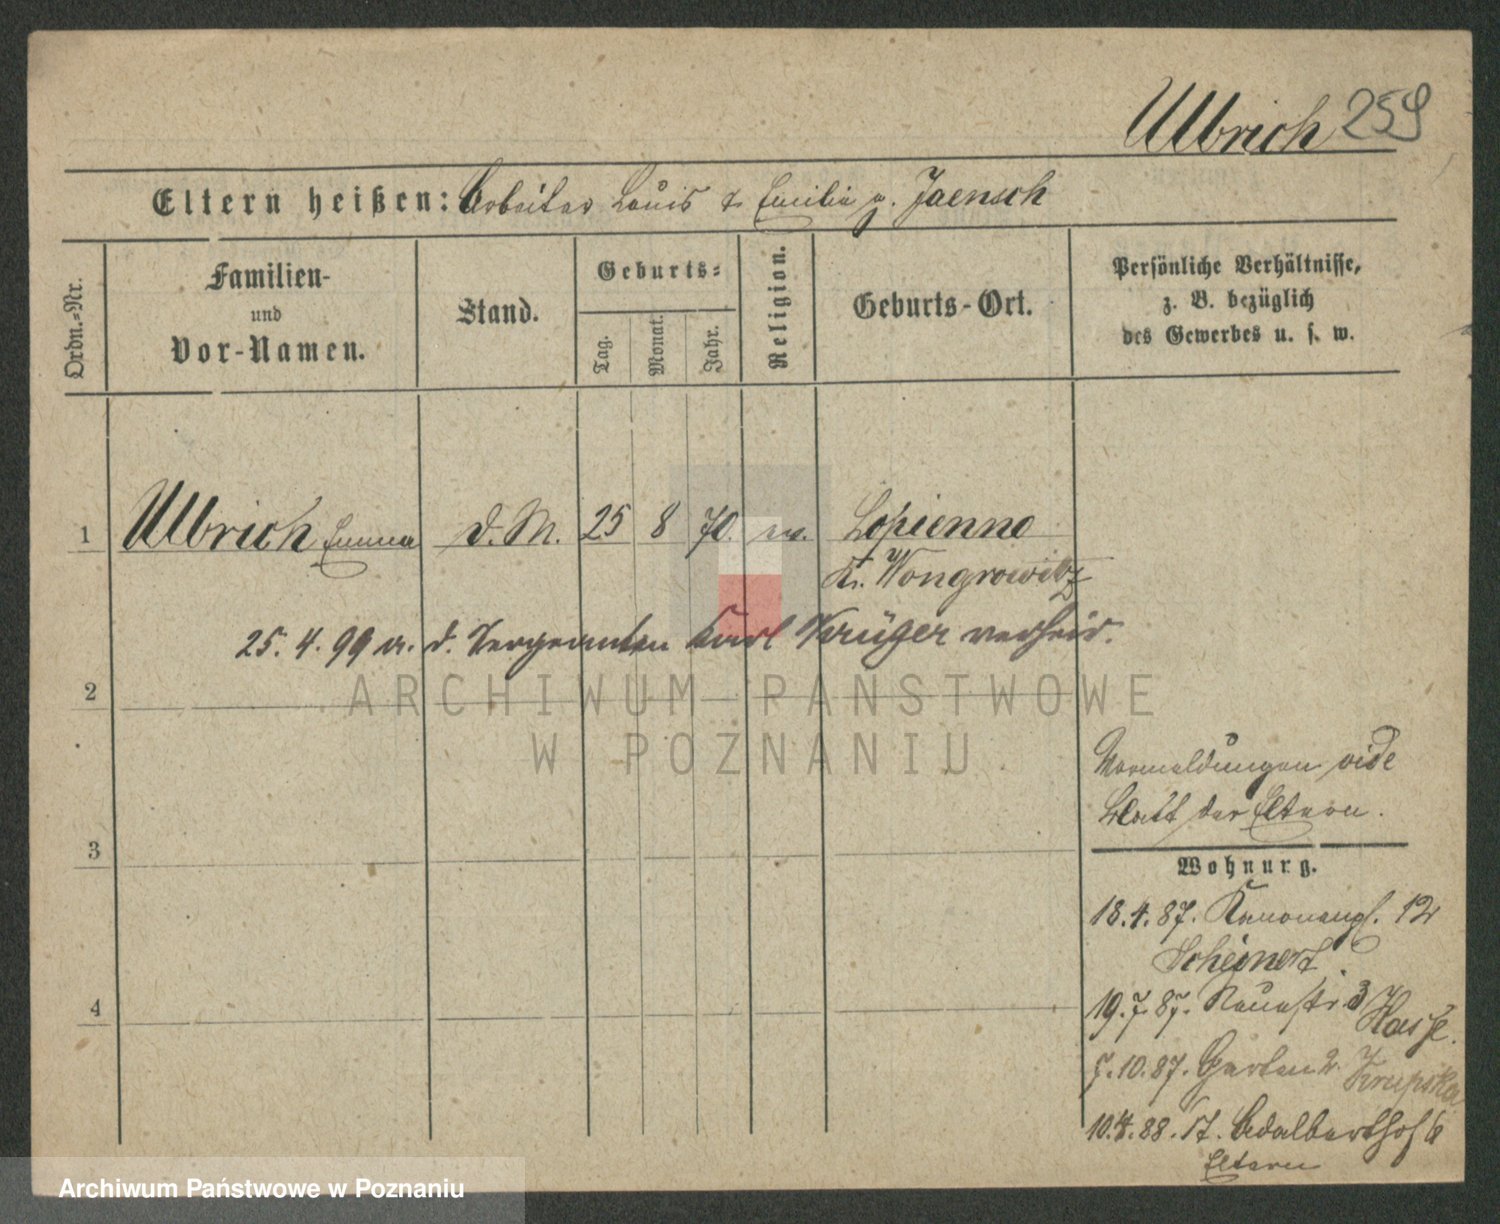 Ulbrich 259
Eltern heißen: Arbeiter Louis & Emilie g. Jaensch
Ordn.-Nr.
Familien-
und
Vor-Namen.
Stand.
Geburts-
Tag.
Monat.
Jahr.
Religion.
Geburts-Ort.
Persönliche Verhältnisse,
z. B. bezüglich
des Gewerbes u. s. w.
1 Ulbrich Emma d. M. 25 8 70. ev. Lopienno
Kr. Wongrowitz
25. 4. 99 a. d. Sergeanten Karl Krüger verheir.
2
ARCHIWUM PAŃSTWOWE
W POZNANIU
Vormeldungen vide
Blatt der Eltern.
3
Wohnung.
18.4.87. Kanonenpl. 12
Scheinert
4
19.7.87. Neuestr. 3 Hasse.
5.10.87. Garten 2. Krupska
10.4.88. St. Adalberthof 6
Eltern
Archiwum Państwowe w Poznaniu